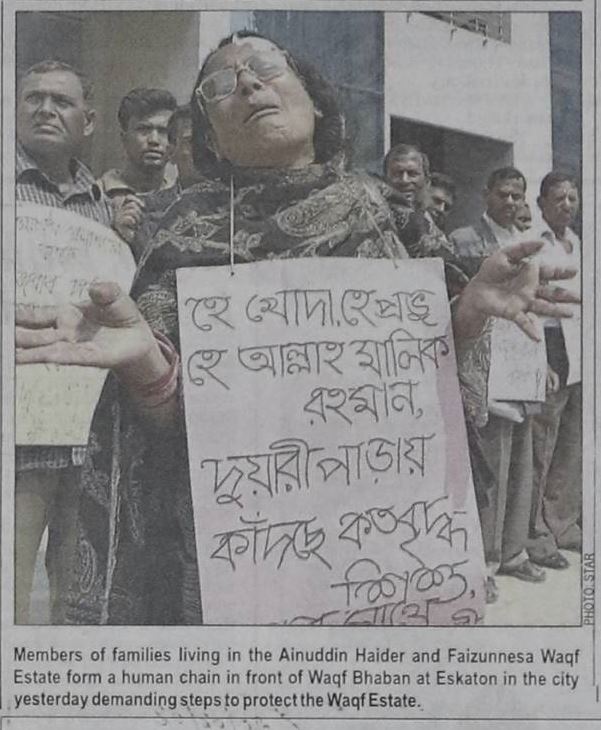 হে খোদা, হে প্রভু
হে আল্লাহ মালিক
রহমান,
দুয়ারীপাড়ায়
কাঁদছে কত বৃদ্ধ
শিশু,
PHOTO: STAR
Members of families living in the Ainuddin Haider and Faizunnesa Waqf
Estate form a human chain in front of Waqf Bhaban at Eskaton in the city
yesterday demanding steps to protect the Waqf Estate.